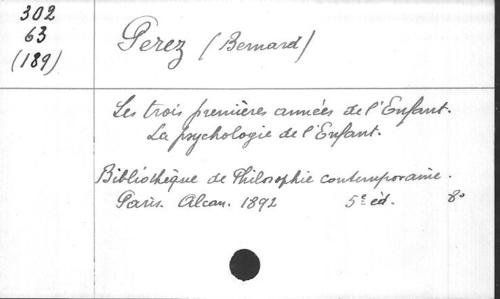 302
63
(189)
Perez (Bernard)
Les trois premières années de l'Enfant.
La psychologie de l'Enfant.
Bibliothèque de Philosophie contemporaine.
Paris. Alcan. 1892 5e éd. 8o